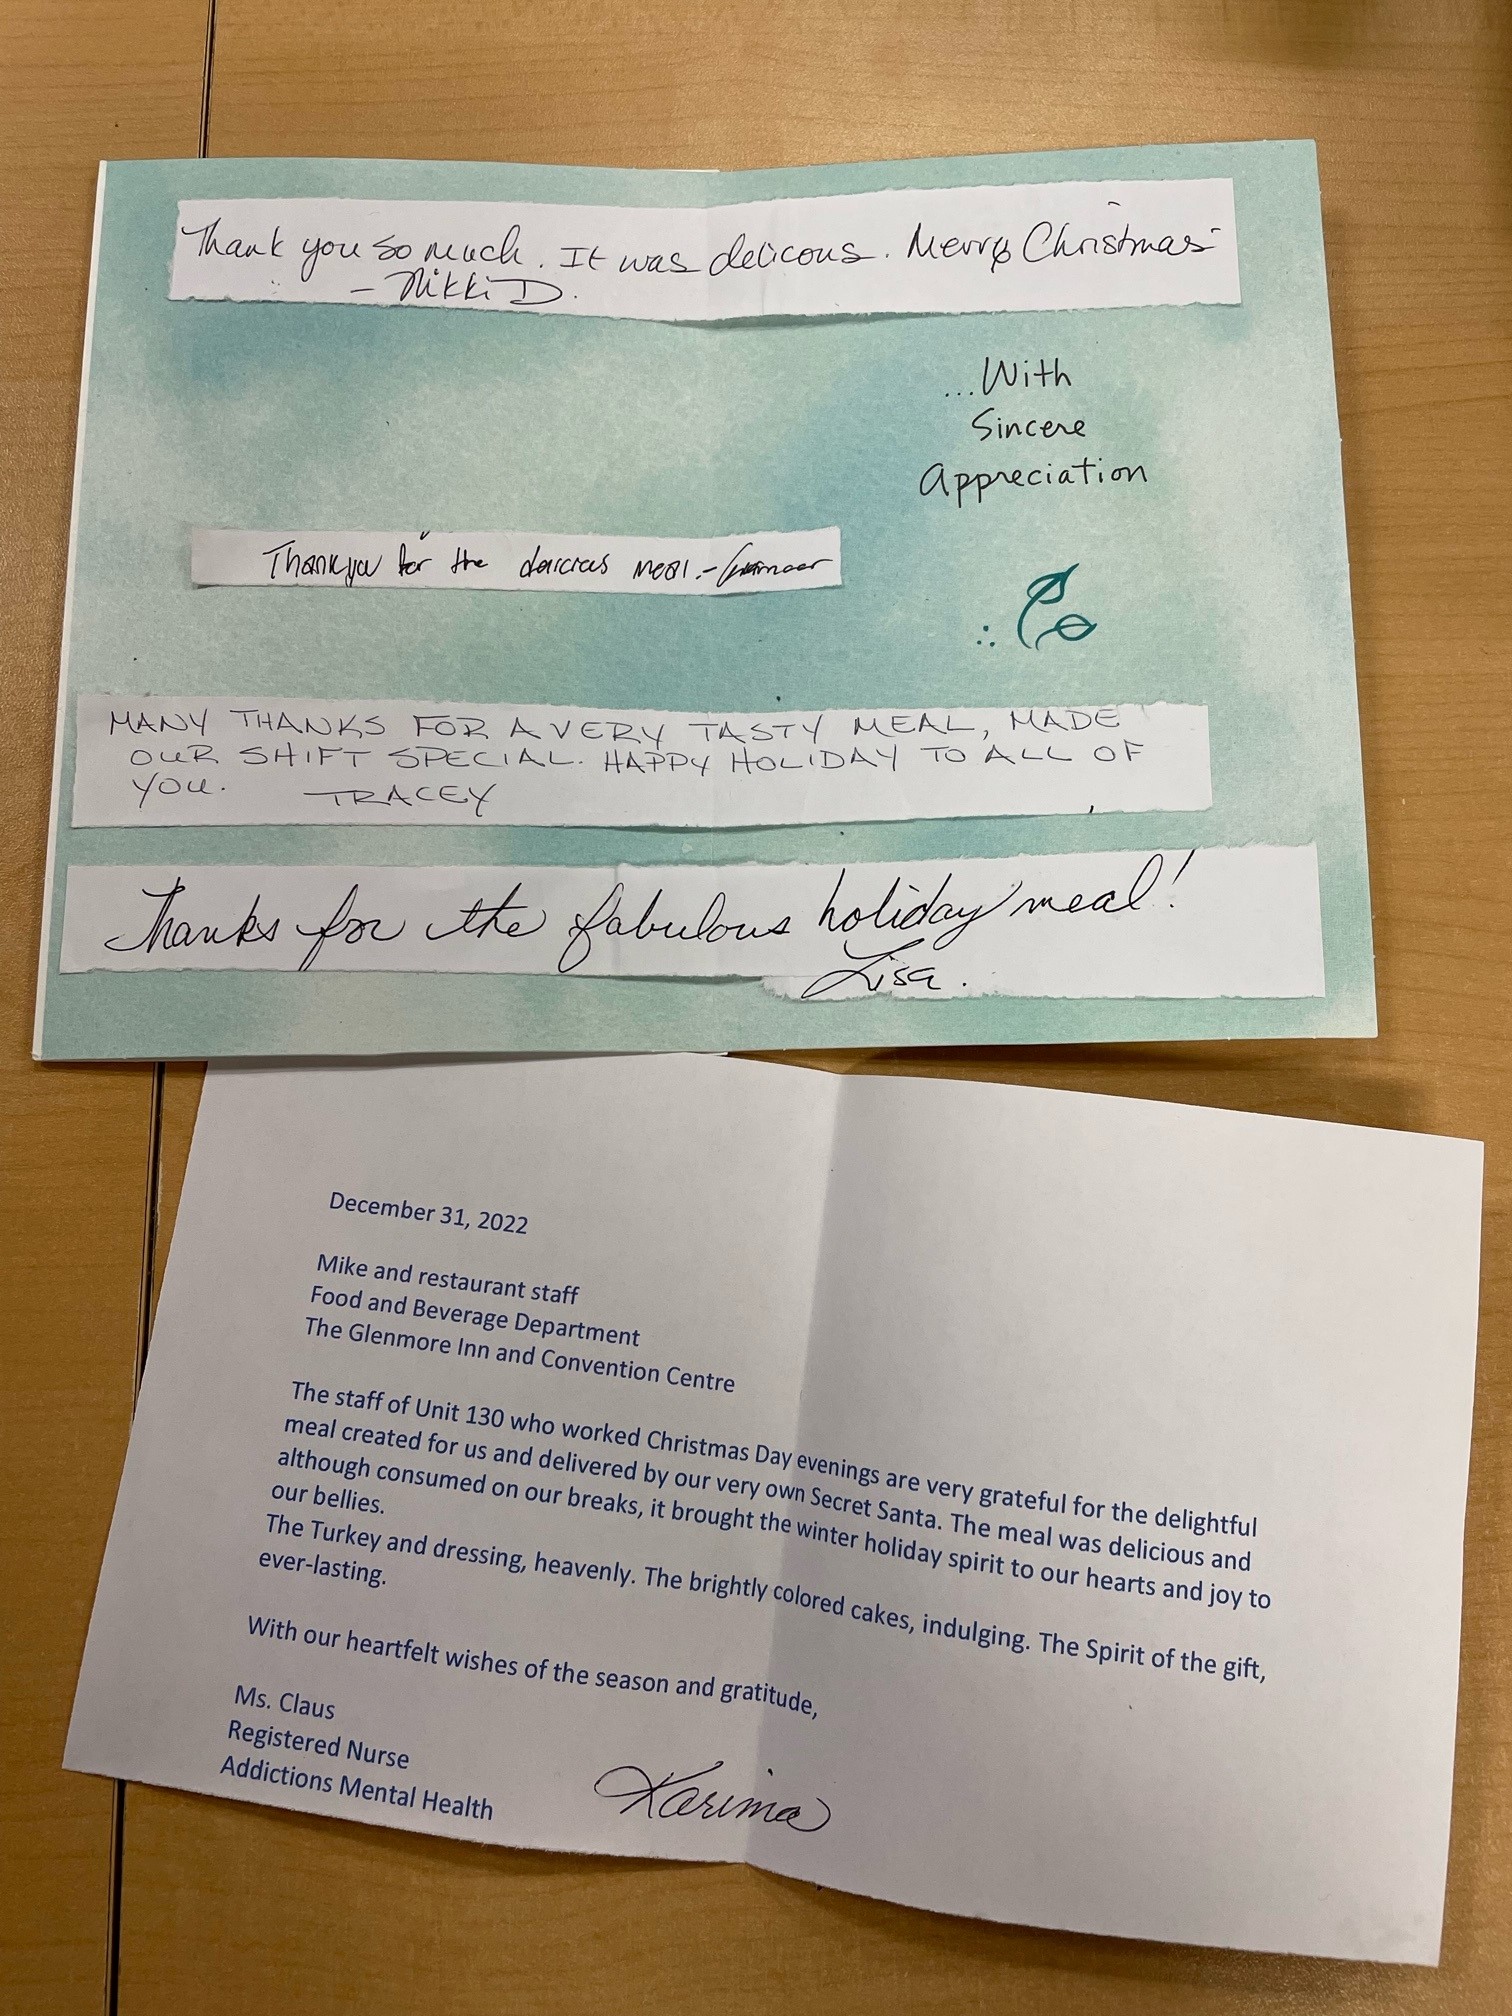 Thank you so much. It was delicous. Merry Christmas
- Nikki D.
...With
Sincere
Appreciation
Thankyou for the meal. -
MANY THANKS FOR A VERY TASTY MEAL, MADE
OUR SHIFT SPECIAL. HAPPY HOLIDAY TO ALL OF
YOU. TRACEY
Thanks for the fabulous holiday meal!
Lisa.
December 31, 2022
Mike and restaurant staff
Food and Beverage Department
The Glenmore Inn and Convention Centre
The staff of Unit 130 who worked Christmas Day evenings are very grateful for the delightful
meal created for us and delivered by our very own Secret Santa. The meal was delicious and
although consumed on our breaks, it brought the winter holiday spirit to our hearts and joy to
our bellies.
The Turkey and dressing, heavenly. The brightly colored cakes, indulging. The Spirit of the gift,
ever-lasting.
With our heartfelt wishes of the season and gratitude,
Ms. Claus
Registered Nurse
Addictions Mental Health
Karima